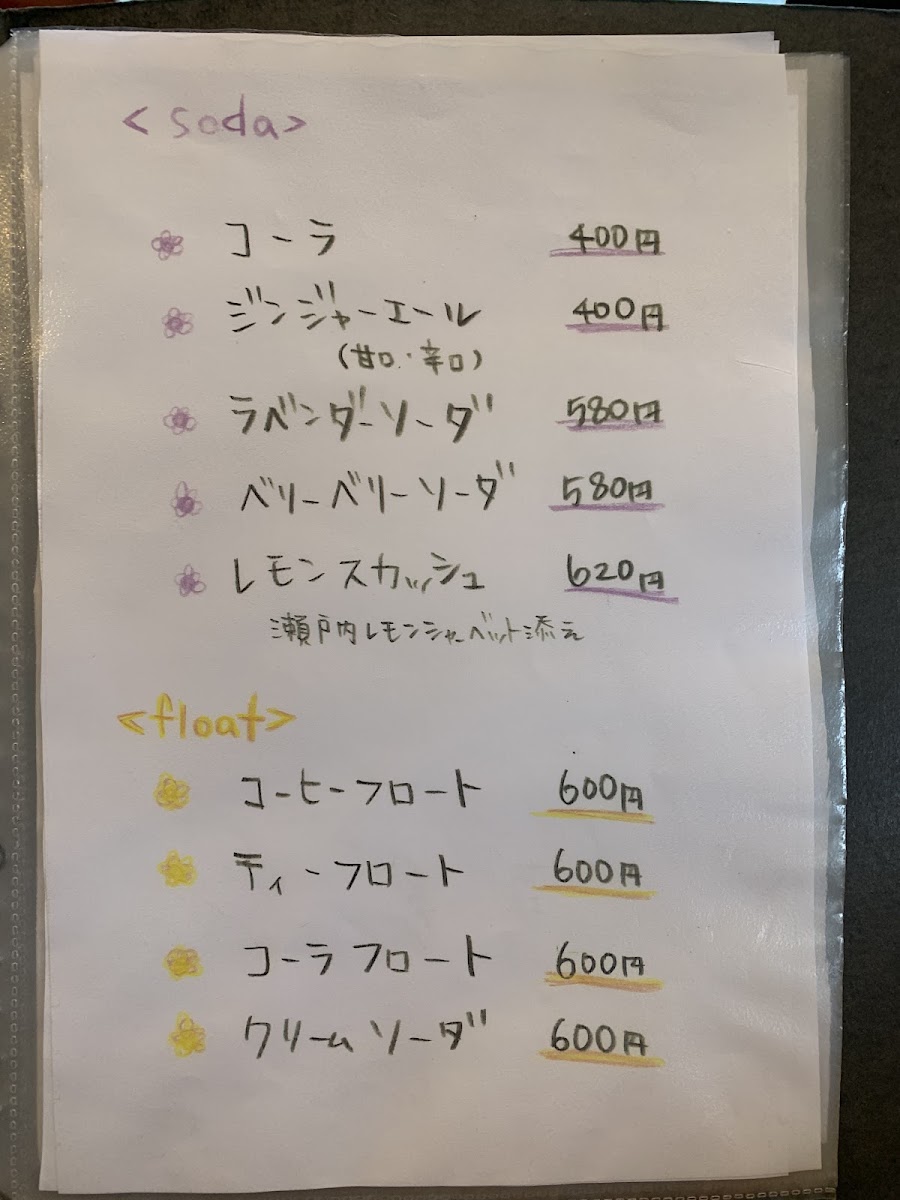 <soda>
コーラ 400円
ジンジャーエール 400円
(甘口・辛口)
ラベンダーソーダ 580円
ベリーベリーソーダ 580円
レモンスカッシュ 620円
瀬戸内レモンシャーベット添え
<float>
コーヒーフロート 600円
ティーフロート 600円
コーラフロート 600円
クリームソーダ 600円